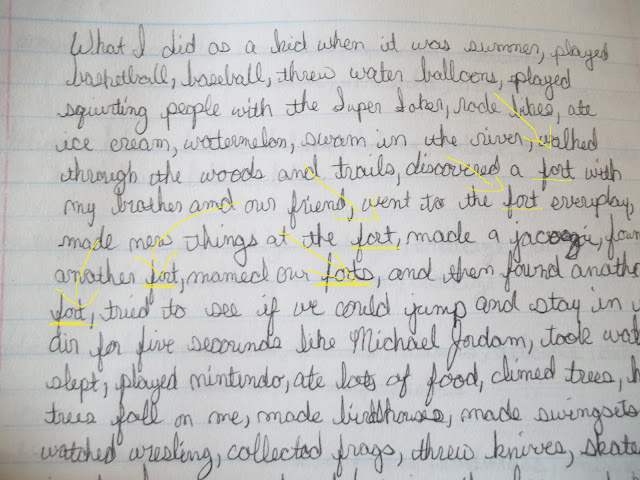 What I did as a kid when it was summer, played
basketball, baseball, threw water balloons, played
squirting people with the Super Soker, rode bikes, ate
ice cream, watermelon, swam in the river, walked
through the woods and trails, discovered a fort with
my brother and our friend, went to the fort everyday,
made new things at the fort, made a jacoozi, foun
another fort, named our forts, and then found anothe
fort, tried to see if we could jump and stay in
air for five secounds like Michael Jordam, took
slept, played nintindo, ate lots of food, climed trees,
trees fall on me, made birdhouses, made swingsets
watched wresling, collected frags, threw knives, skate